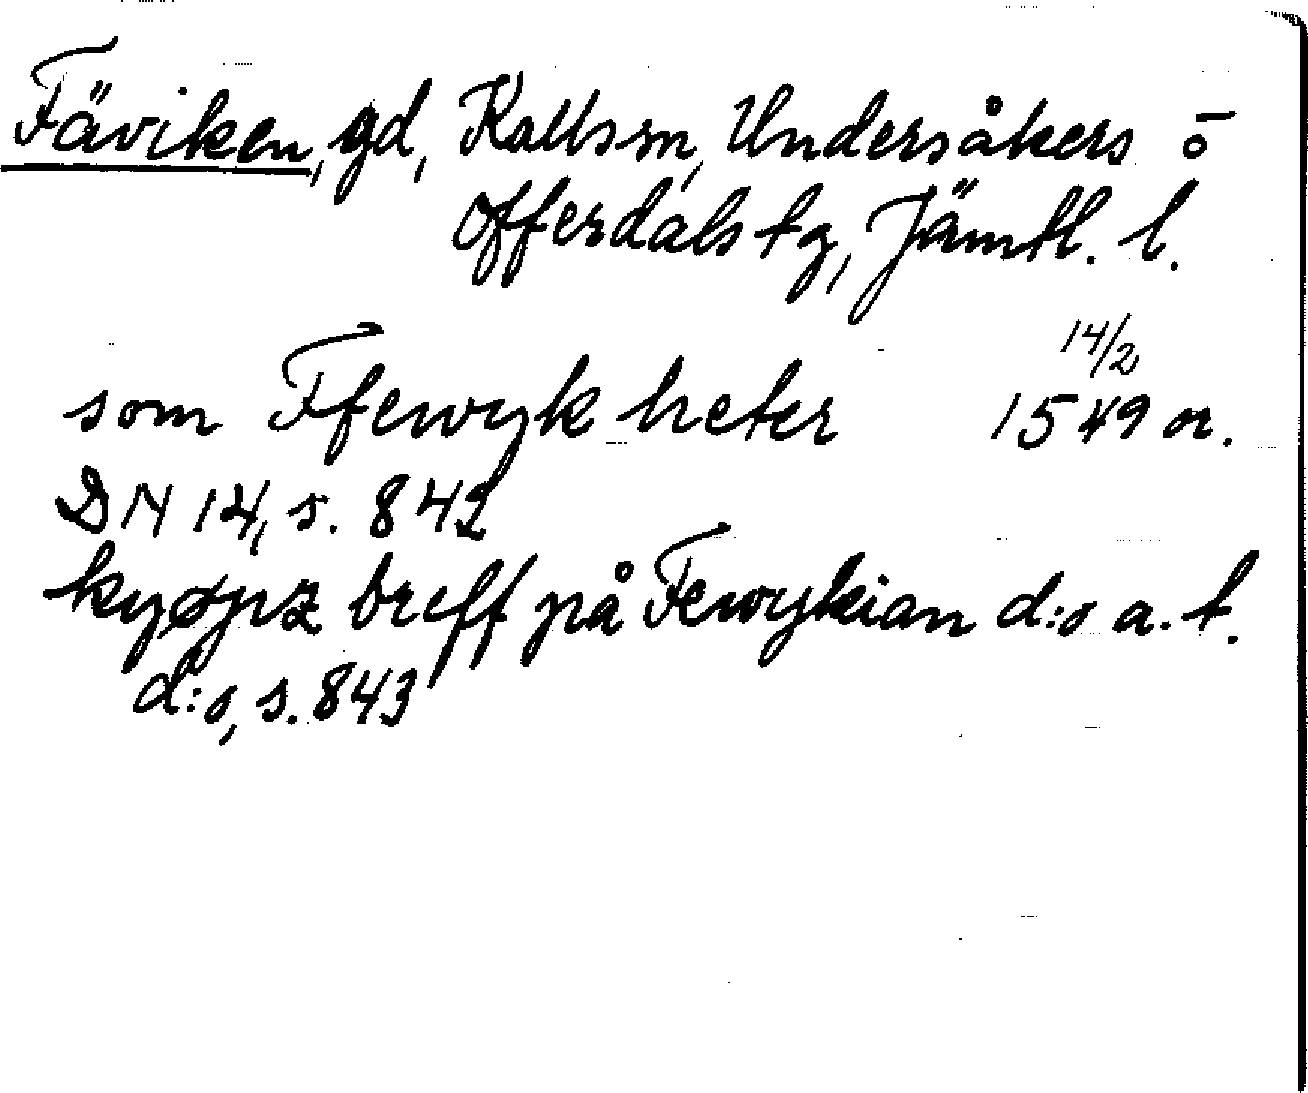 Fäviken, gd, Kalls sn, Undersåkers o
Offerdals tg, Jämtl. l.
14/2
som Ffewyk heter 1549 or.
DN 14, s. 842
kyøpz breff på Fewykian d:o a.t.
d:o, s. 843